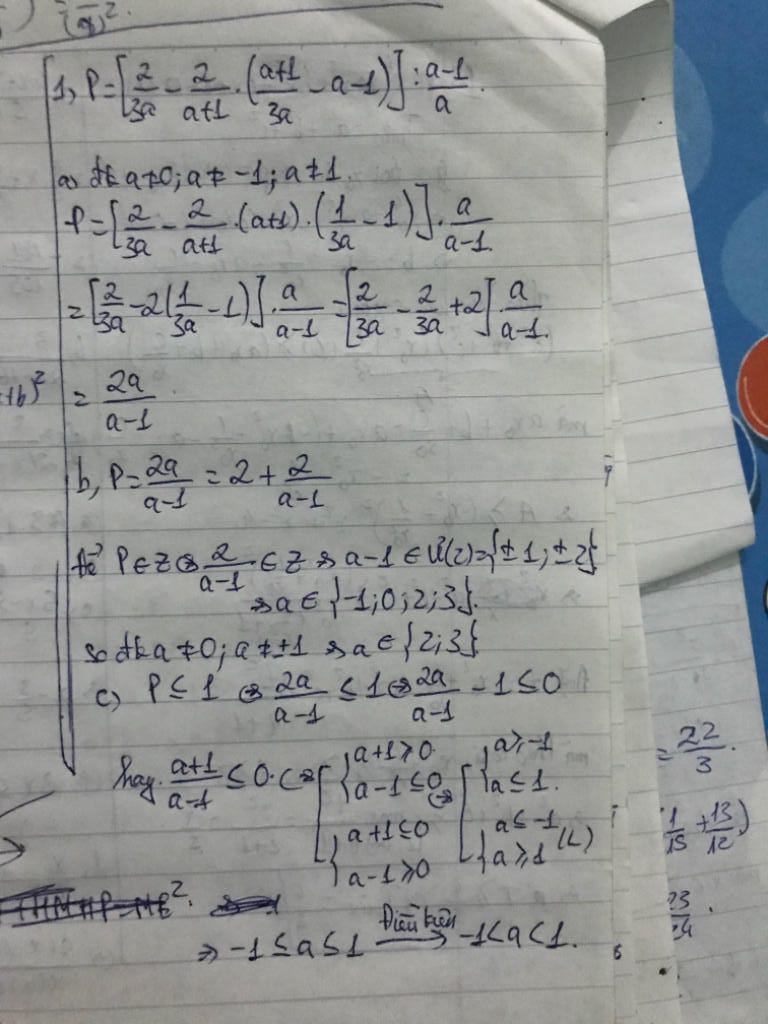 (x)².
1, P=[2/3a - 2/a+1 · (a+1/3a - a-1)] : a-1/a.
a, đk a≠0; a≠-1; a≠1.
P=[2/3a - 2/a+1 · (a+1) · (1/3a - 1)] · a/a-1.
=[2/3a - 2(1/3a - 1)] · a/a-1 = [2/3a - 2/3a + 2] · a/a-1.
+b)² = 2a/a-1
b, P= 2a/a-1 = 2 + 2/a-1
để P∈Z ⇔ 2/a-1 ∈ Z ⇔ a-1 ∈ Ư(2)={±1; ±2}
⇔ a∈{-1; 0; 2; 3}.
so đk a≠0; a≠±1 ⇒ a∈{2; 3}
c, P ≤ 1 ⇔ 2a/a-1 ≤ 1 ⇔ 2a/a-1 - 1 ≤ 0
hay a+1/a-1 ≤ 0. ⇔ [ { a+1≥0 a-1≤0 ⇔ [ { a≥-1 a≤1.
{ a+1≤0 a-1≥0 { a≤-1 a≥1 (L)
⇒ -1≤a≤1 Điều kiện → -1<a<1.
= 22/3.
1/15 + 13/12)
23/24.